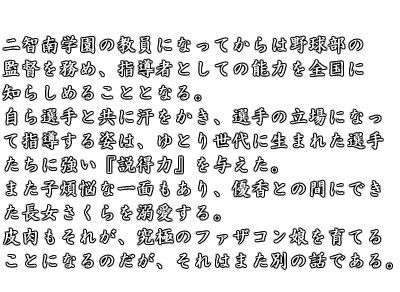 二智南学園の教員になってからは野球部の
監督を務め、指導者としての能力を全国に
知らしめることとなる。
自ら選手と共に汗をかき、選手の立場になっ
て指導する姿は、ゆとり世代に生まれた選手
たちに強い『説得力』を与えた。
また子煩悩な一面もあり、優香との間にでき
た長女さくらを溺愛する。
皮肉もそれが、究極のファザコン娘を育てる
ことになるのだが、それはまた別の話である。